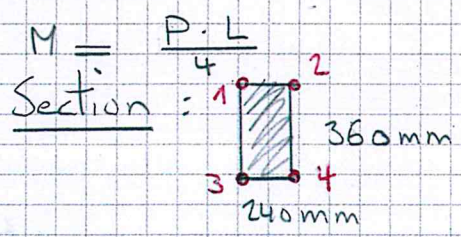 M = P · L
4
Section :
1
2
360mm
3
4
240mm